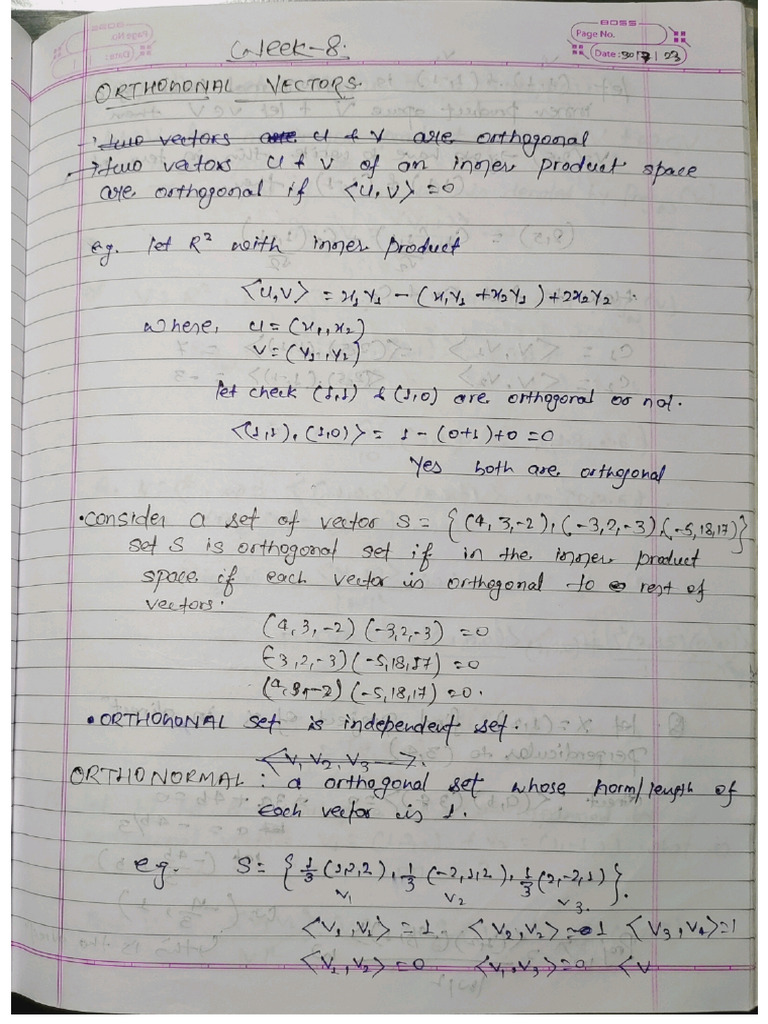 BOSS
Page No.
Date: 30/7/23
Week-8.
ORTHOGONAL VECTORS.
→ two vectors are U & V are orthogonal
→ two vectors U & V of an inner product space
are orthogonal if <U,V> =0
eg. let R² with inner product
<U,V> = x₁y₁ - (x₁y₁ + x₂y₁) + 2x₂y₂
where, U = (x₁, x₂)
V = (y₁, y₂)
let check (1,1) & (1,0) are orthogonal or not.
<(1,1), (1,0)> = 1 - (0+1) + 0 = 0
Yes both are orthogonal
• Consider a set of vector S = {(4, 3,-2), (-3,2,-3), (-5,18,17)}
set S is orthogonal set if in the inner product
space if each vector is orthogonal to rest of
vectors.
(4, 3, -2) (-3,2,-3) =0
(-3, 2, -3) (-5,18,17) =0
(4, 3, -2) (-5,18,17) =0.
• ORTHOGONAL set is independent set.
<V₁ V₂ V₃>.
ORTHONORMAL : a orthogonal set whose norm/length of
each vector is 1.
eg. S = {1/3 (1,2,2), 1/3 (-2,1,2), 1/3 (2,-2,1)}.
V₁ V₂ V₃.
<V₁, V₁> = 1 <V₂, V₂> = 1 <V₃, V₄> = 1
<V₁, V₂> = 0 <V₁, V₃> = 0 <V